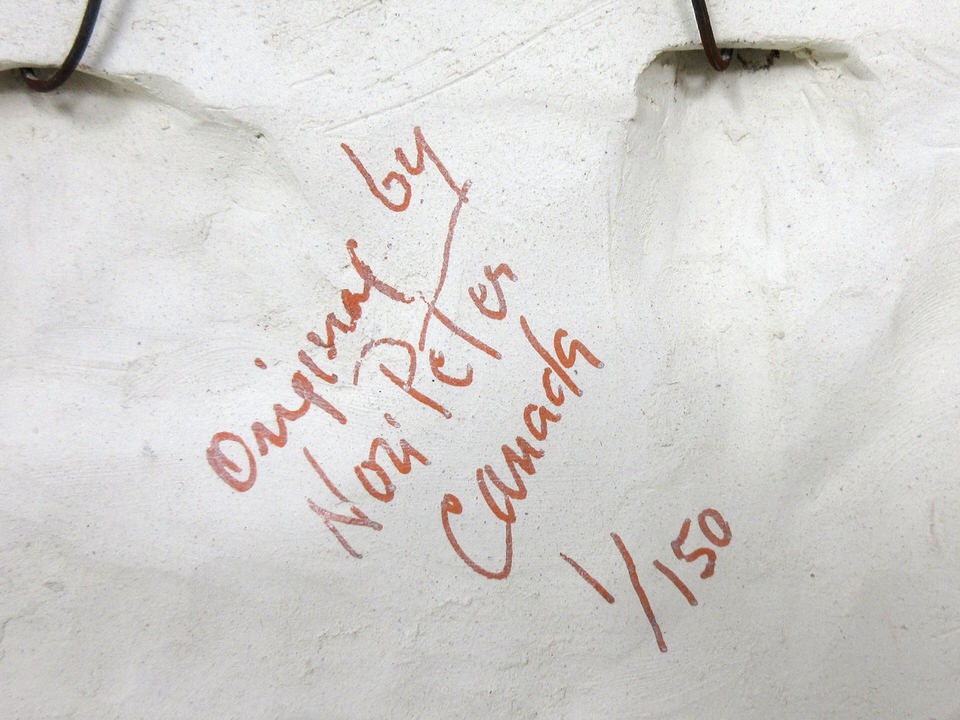 Original by
Nori Peter
Canada
1/150